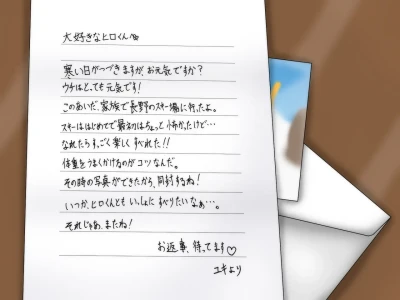 大好きなヒロくん♡
寒い日がつづきますが、お元気ですか？
ウチはとっても元気です！
このあいだ、家族で長野のスキー場に行ったよ。
スキーははじめてで最初はちょっと怖かったけど…
なれたらすっごく楽しくすべれた!!
体重をうまくかけるのがコツなんだ。
その時の写真ができたから、同封するね！
いつか、ヒロくんともいっしょにすべりたいなぁ…。
それじゃあ、またね！
お返事、待ってます♡
ユキより